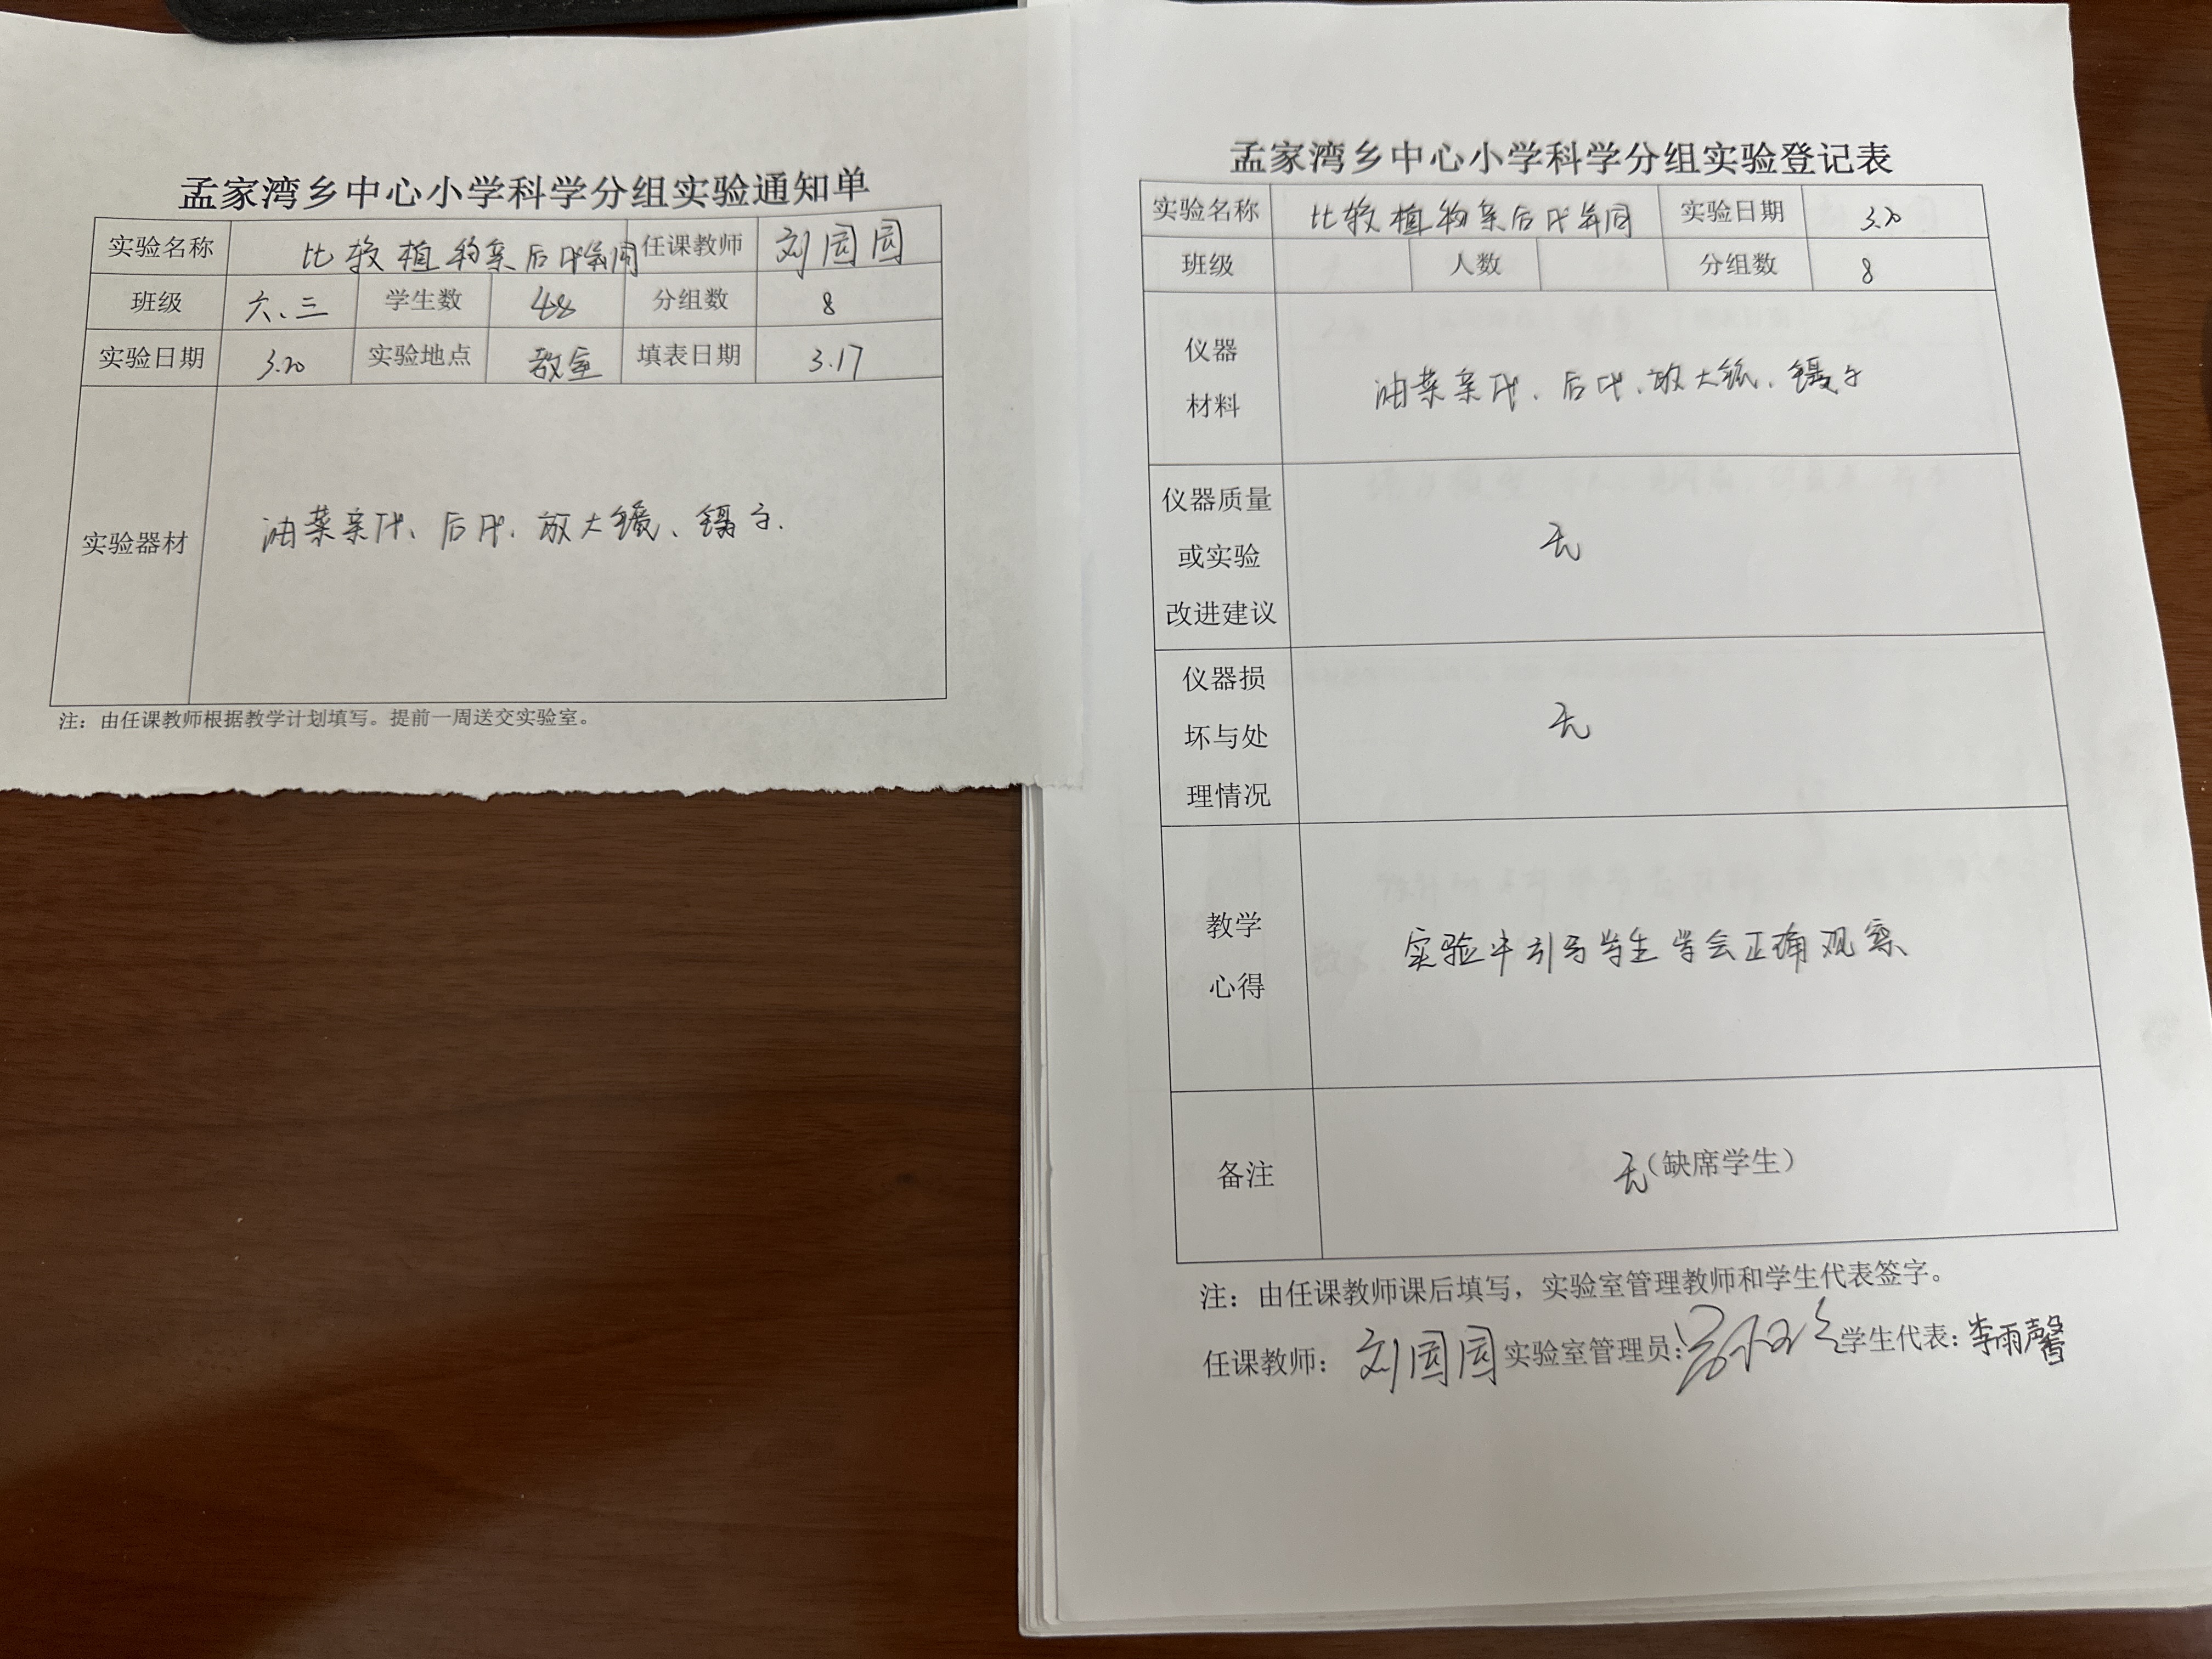 孟家湾乡中心小学科学分组实验通知单
实验名称 比较植物亲后代异同 任课教师 刘园园
班级 六、三 学生数 48 分组数 8
实验日期 3.20 实验地点 教室 填表日期 3.17
实验器材 油菜亲代、后代、放大镜、镊子.
注：由任课教师根据教学计划填写。提前一周送交实验室。
孟家湾乡中心小学科学分组实验登记表
实验名称 比较植物亲后代异同 实验日期 3.20
班级 人数 分组数 8
仪器
材料
油菜亲代、后代、放大镜、镊子
仪器质量
或实验
改进建议
无
仪器损
坏与处
理情况
无
教学
心得
实验中引导学生学会正确观察
备注 无（缺席学生）
注：由任课教师课后填写，实验室管理教师和学生代表签字。
任课教师：刘园园 实验室管理员： 学生代表：李雨馨